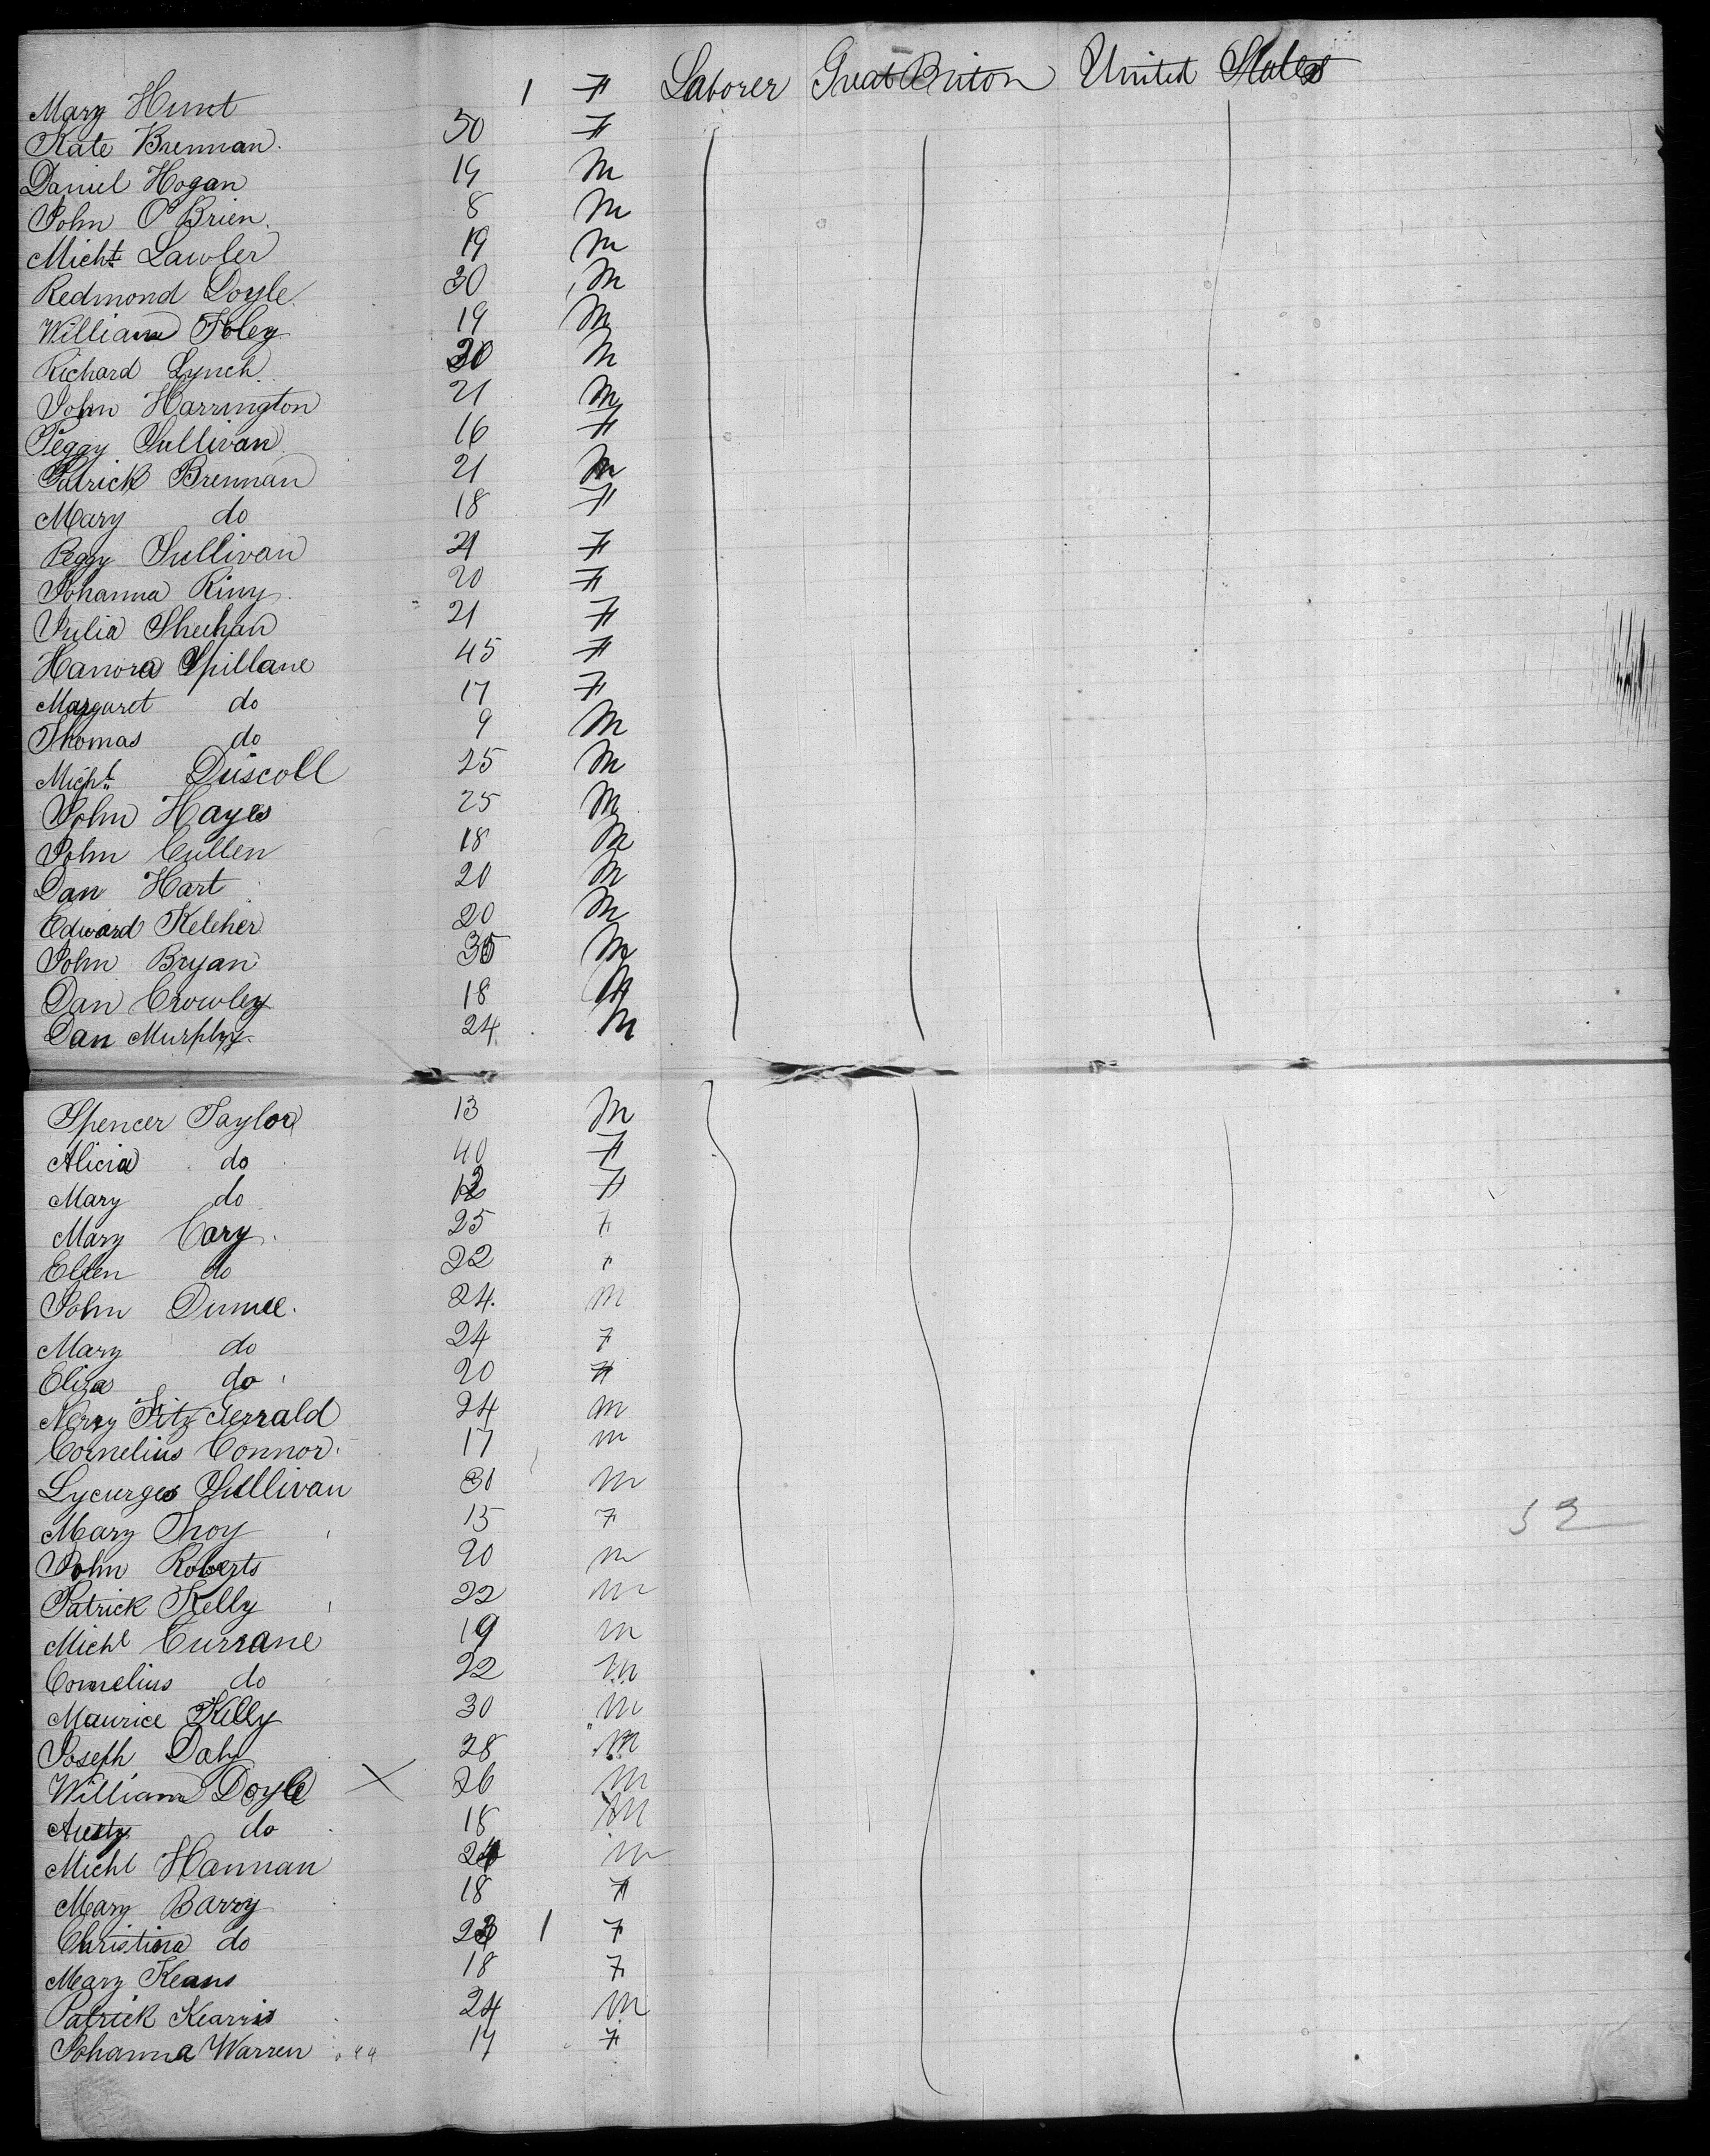 Mary Hunt 1 F Laborer Great Briton United States
Kate Brennan 50 F
Daniel Hogan 19 M
John O'Brien 8 M
Michl Lawler 19 M
Redmond Doyle 30 M
William Foley 19 M
Richard Lynch 30 M
John Harrington 21 M
Peggy Sullivan 16 F
Patrick Brennan 21 M
Mary do 18 F
Peggy Sullivan 21 F
Johanna Riny 20 F
Julia Sheehan 21 F
Hanora Spillane 45 F
Margaret do 17 F
Thomas do 9 M
Michl Driscoll 25 M
John Hayes 25 M
John Cullen 18 M
Dan Hart 20 M
Edward Keleher 20 M
John Bryan 35 M
Dan Crowley 18 M
Dan Murphy 24 M
Spencer Taylor 13 M
Alicia do 40 F
Mary do 12 F
Mary Cary 25 F
Ellen do 22 "
John 24 M
Mary do 24 F
Eliza do 20 F
Fitz Gerrald 24 M
Cornelius Connor 17 M
Lycurgus Sullivan 30 M
Mary Troy 15 F
52
John Roberts 20 M
Patrick Kelly 22 M
Michl Currane 19 M
Cornelius do 22 M
Maurice Kelly 30 M
Joseph Daly 28 M
William Doyle X 26 M
do 18 M
Michl Hannan 24 M
Mary Barry 18 F
Christina do 1 F
Mary Keans 18 F
Patrick 24 M
Johanna Warren 17 F